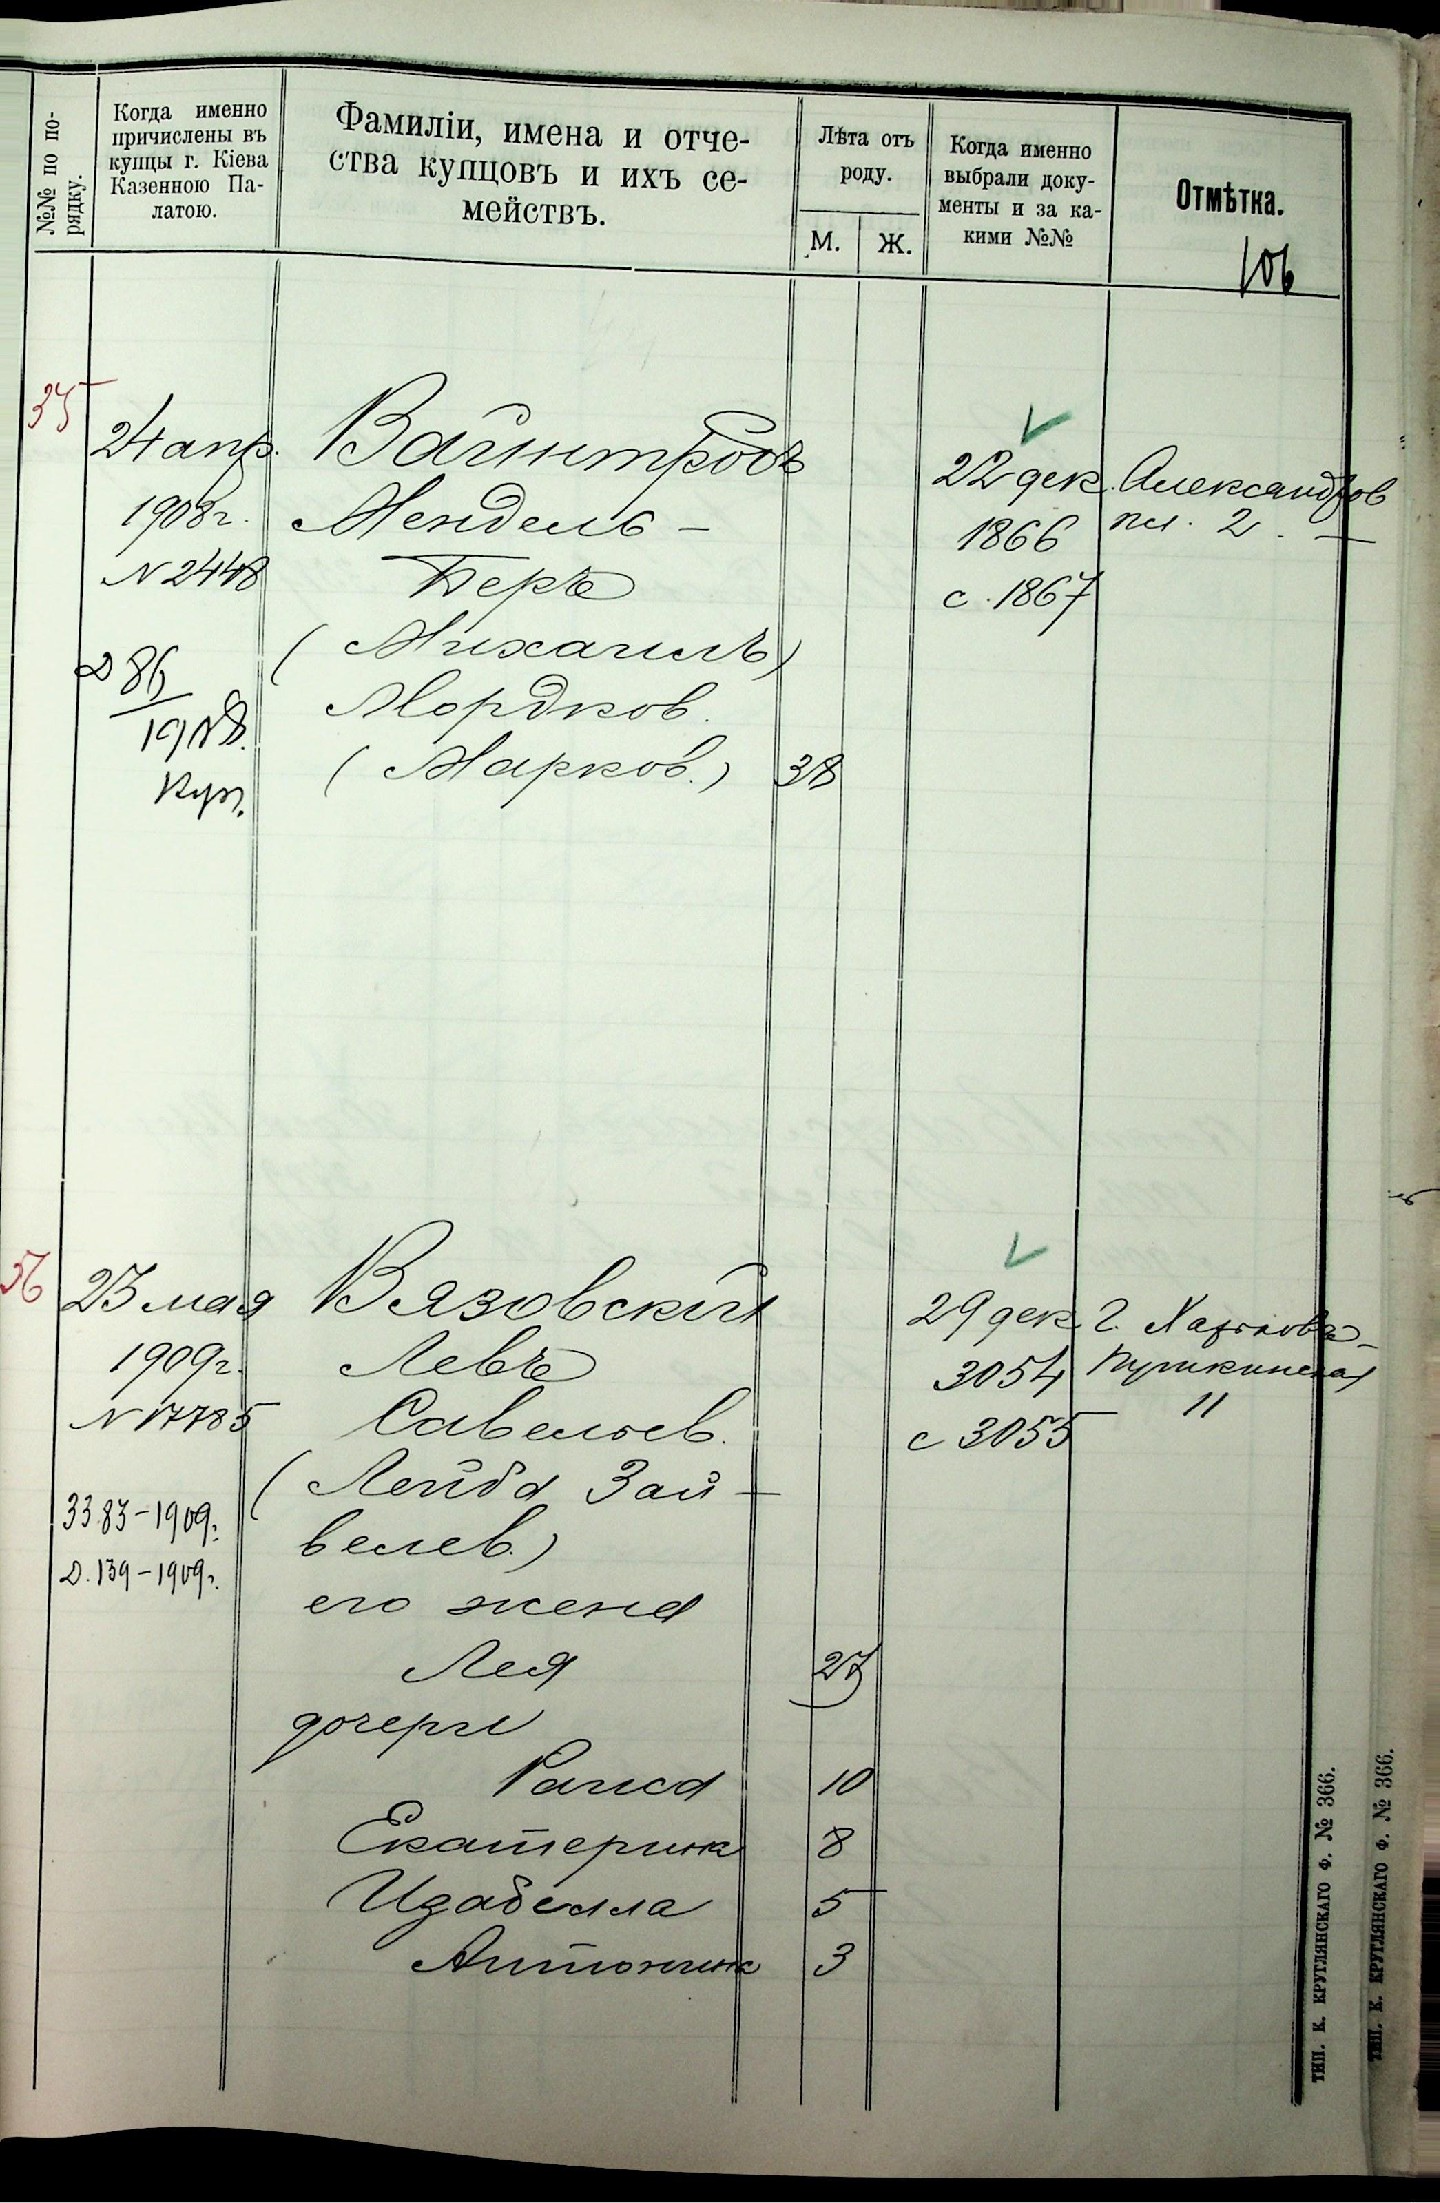 №№ по по-
рядку.
Когда именно
причислены въ
купцы г. Кіева
Казенною Па-
латою.
Фамиліи, имена и отче-
ства купцовъ и ихъ се-
мействъ.
Лѣта отъ
роду.
М.
Ж.
Когда именно
выбрали доку-
менты и за ка-
кими №№
Отмѣтка.
106
35
24 апр.
1908 г.
N 2448
Д 86
1908.
Куп.
Вайнтробъ
Мендель -
Беръ
(Михаилъ)
Мордков.
(Марков.)
38
22 дек.
1866
с. 1867
Александров
пл. 2. —
36
23 мая
1909 г.
N 17785
3383-1909 г.
Д. 139-1909 г.
Вязовскій
Левъ
Савельев.
(Лейба Зай-
велев.)
его жена
Лея
27
дочери
Раиса
10
Екатерина
8
Изабелла
5
Антонина
3
29 дек.
3054
с 3055
г. Харьковъ
Пушкинская
11
ТИП. К. КРУГЛЯНСКАГО Ф. № 366.
ТИП. К. КРУГЛЯНСКАГО Ф. № 366.